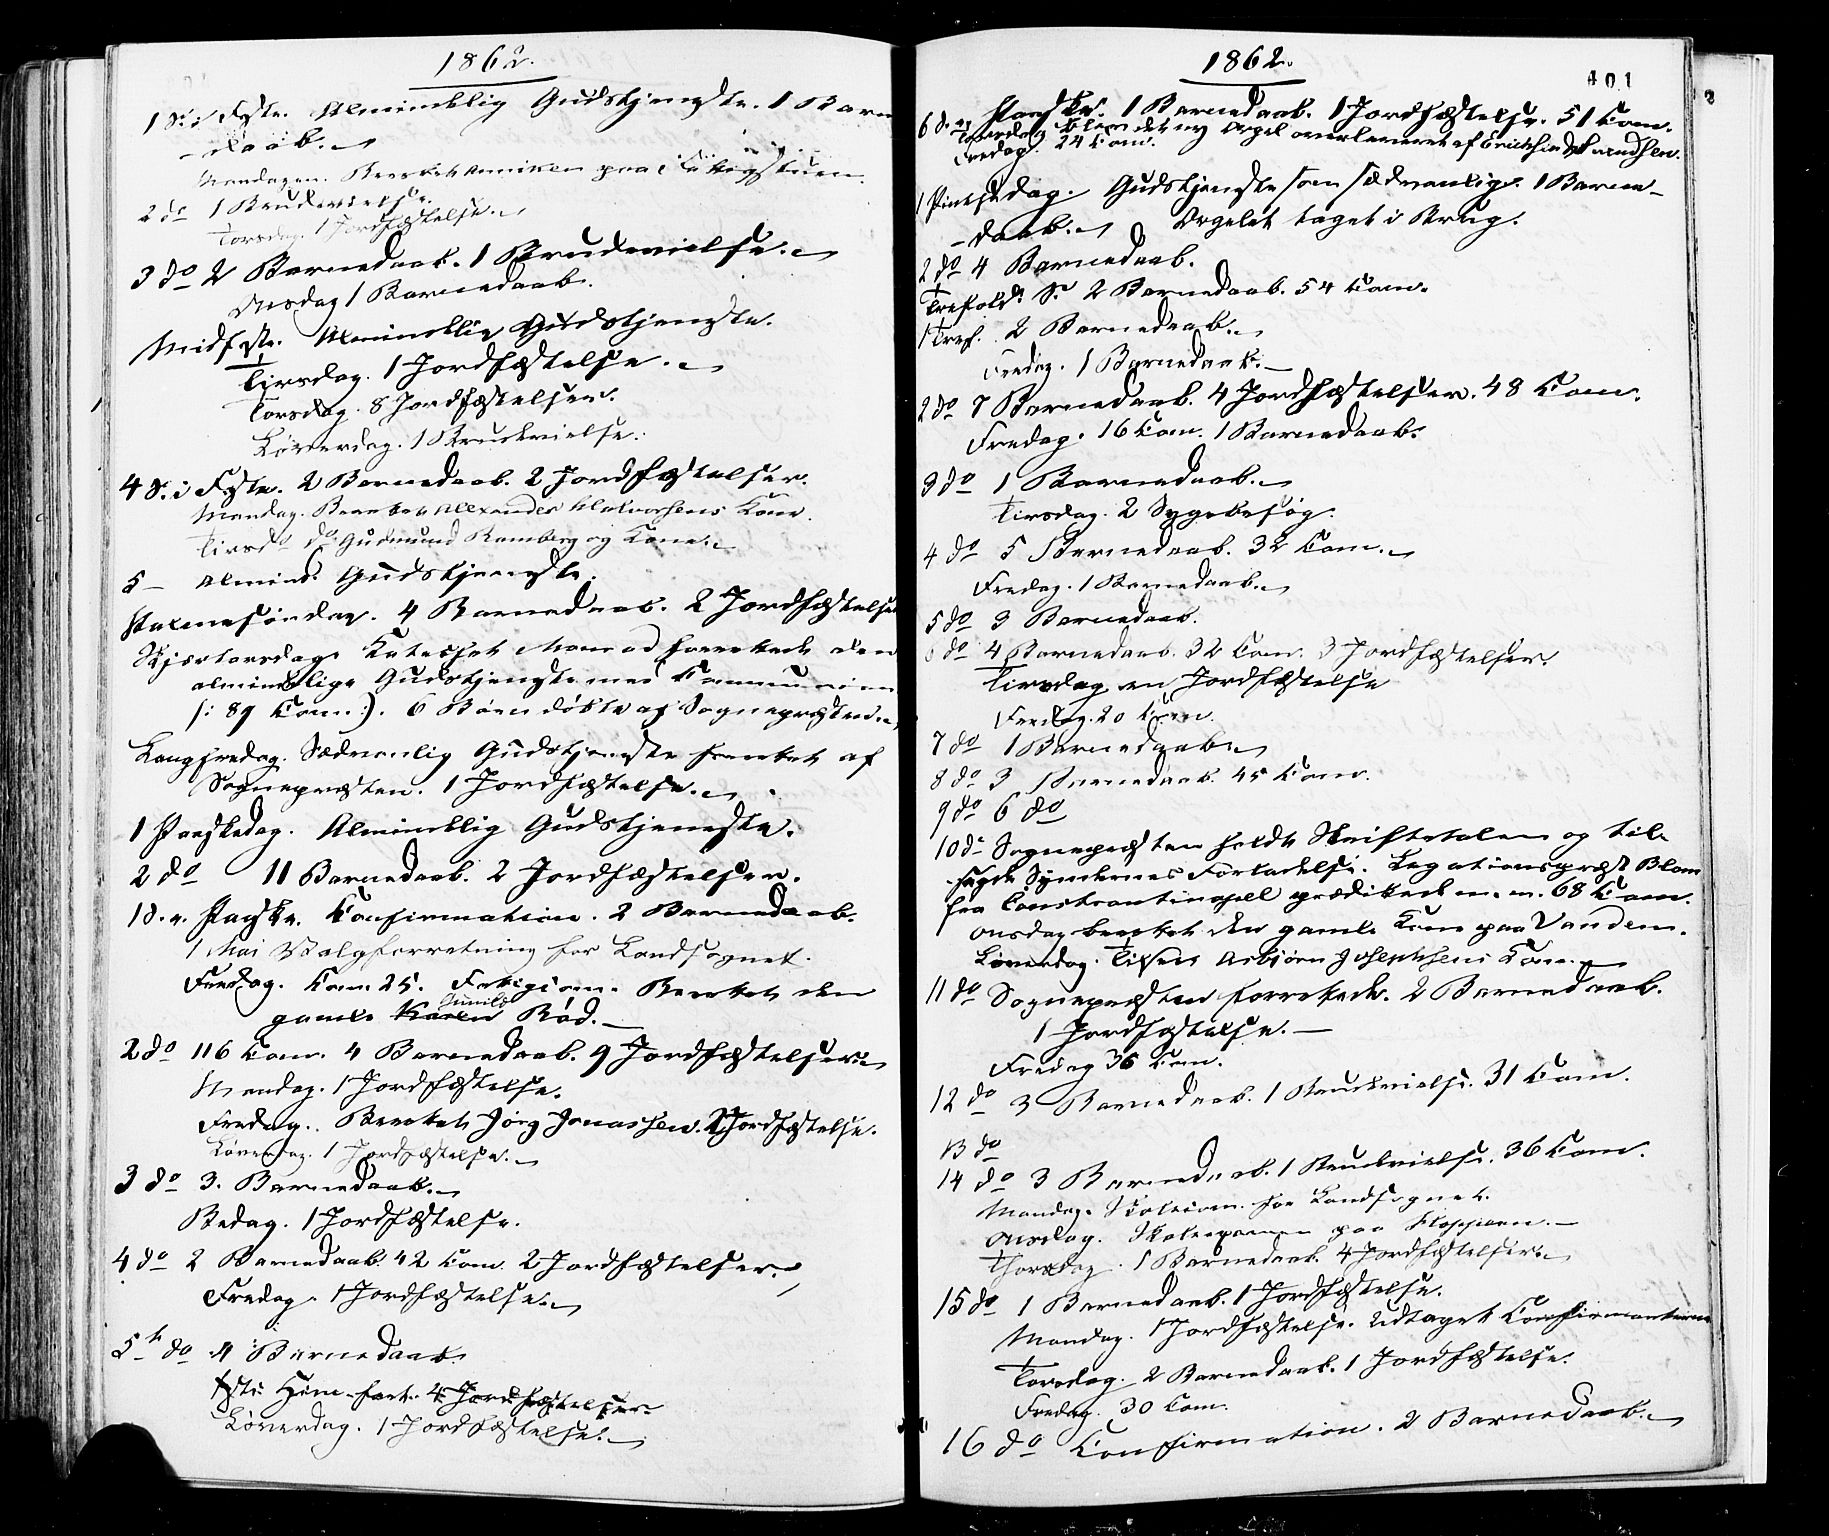 1862.
1 S. i Faste. Almindelig Gudstjeneste. 1 Barne
-daab.
Mandagen. Berettet Anniken paa Fattigstuen.
2 do 1 Brudevielse.
Torsdag. 1 Jordfæstelse.
3 do 2 Barnedaab. 1 Brudevielse.
Onsdag 1 Barnedaab.
Midfaste. Almindelig Gudstjeneste.
Tirsdag. 1 Jordfæstelse.
Torsdag. 8 Jordfæstelser.
Løverdag. 1 Brudevielse.
4 S. i Faste. 2 Barnedaab. 2 Jordfæstelser.
Mandag. Berettet Alexander Halvorsens Kone.
Tirsd do Gudmund Ramberg og Kone.
5 - Almind. Gudstjeneste.
Palmesøndag. 4 Barnedaab. 2 Jordfæstelser
Skjærtorsdag. Katechet Monrad forrettede den
almindelige Gudstjeneste med Communion
(: 89 Com:). 6 Børn døbte af Sognepræsten.
Langfredag. Sædvanlig Gudstjeneste forrettet af
Sognepræsten. 1 Jordfæstelse.
1 Paaskedag. Almindelig Gudstjeneste.
2 do 11 Barnedaab. 2 Jordfæstelser.
1 S. e. Paaske. Confirmation. 2 Barnedaab.
1 Mai Valgforretning for Landsognet.
Fredag. Com. 25. Fattigcom. Berettet den
gamle Karen Gunild Rød.
2 do 116 Com. 4 Barnedaab. 9 Jordfæstelser
Mandag. 1 Jordfæstelse.
Fredag. Berettet Jørg Jonassen. 2 Jordfæstelse.
Løverdag. 1 Jordfæstelse.
3 do 3. Barnedaab.
Bedag. 1 Jordfæstelse.
4 do 2 Barnedaab. 42 Com. 2 Jordfæstelser.
Fredag. 1 Jordfæstelse.
5 do 4 Barnedaab.
Chr. Himmelfart. 4 Jordfæstelser.
Løverdag. 1 Jordfæstelse.
1862.
401
6 S. e. Paaske. 1 Barnedaab. 1 Jordfæstelse. 51 Com.
Torsdag blev det ny Orgel overleveret af Erichsen & Svendsen.
Fredag. 24 Com.
1 Pintsedag. Gudstjeneste som sædvanlig. 1 Barne-
-daab. Orgelet taget i Brug.
2 do 4 Barnedaab.
Trefold. S. 2 Barnedaab. 54 Com.
1 Tref. 2 Barnedaab.
Fredag. 1 Barnedaab.
2 do 7 Barnedaab. 4 Jordfæstelser. 48 Com.
Fredag. 16 Com. 1 Barnedaab.
3 do 1 Barnedaab.
Tirsdag. 2 Sygebesøg.
4 do 5 Barnedaab. 32 Com.
Fredag. 1 Barnedaab.
5 do 3 Barnedaab.
6 do 4 Barnedaab. 32 Com. 3 Jordfæstelser.
Tirsdag en Jordfæstelse
Fredag. 20 Com.
7 do 1 Barnedaab
8 do 3 Barnedaab. 45 Com.
9 do 6 do
10 do Sognepræsten holdt Skriftetalen og til-
sagde Syndernes Forladelse. Legationspræst Blom
fra Constantinopel prædikede m. m. 68 Com.
Onsdag berettet den gamle Kone paa Vandem.
Løverdag. Ligesaa Asbjørn Josephsens Kone.
11 do Sognepræsten forrettede. 2 Barnedaab.
1 Jordfæstelse.
Fredag 36 Com.
12 do 3 Barnedaab. 1 Brudevielse. 31 Com.
13 do
14 do 3 Barnedaab. 1 Brudevielse. 36 Com.
Mandag. Skolecom. for Landsognet.
Onsdag. Skoleexamen paa
Thorsdag. 1 Barnedaab. 4 Jordfæstelser.
15 do 1 Barnedaab. 1 Jordfæstelse.
Mandag. 1 Jordfæstelse. Udtaget Confirmanterne
Torsdag. 2 Barnedaab. 1 Jordfæstelse.
Fredag. 30 Com.
16 do Confirmation. 2 Barnedaab.